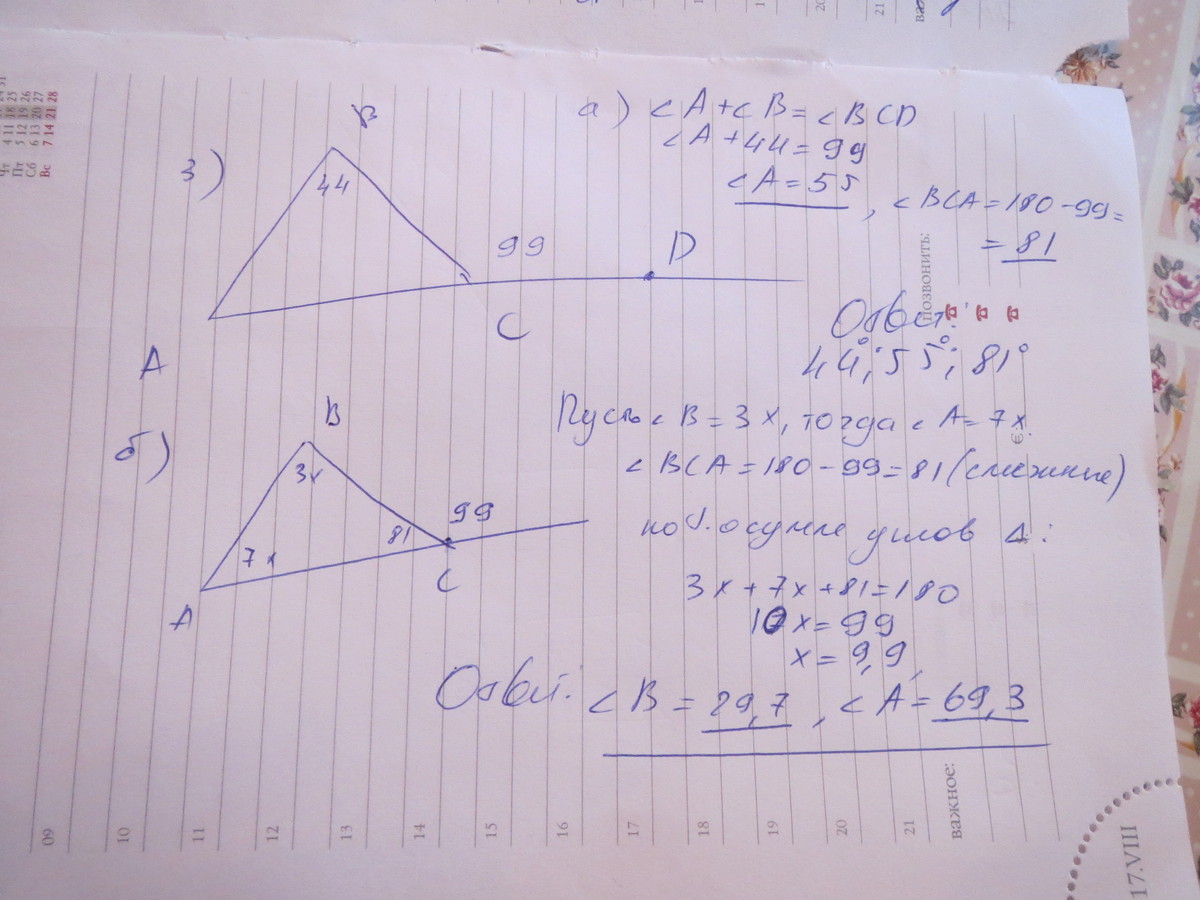 3)
B
44
99
D
C
A
а) ∠A+∠B=∠BCD
∠A+44=99
∠A=55, ∠BCA=180-99=
=81
Ответ:
44°; 55°; 81°
б)
B
3x
7x
81
99
A
C
Пусть ∠B=3x, тогда ∠A=7x.
∠BCA=180-99=81 (смежные)
по т. о сумме углов Δ:
3x+7x+81=180
10x=99
x=9,9
Ответ: ∠B=29,7, ∠A=69,3
позвонить:
важное:
09
10
11
12
13
14
15
16
17
18
19
20
21
17.VIII
Чт 4 11 18 25
Пт 5 12 19 26
Сб 6 13 20 27
Вс 7 14 21 28